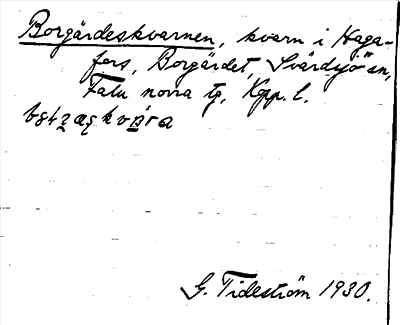 Borgärdeskvarnen, kvarn i Haga-
fors, Borgärdet, Svärdsjö sn,
Falu norra tg, Kpp. l.
G. Tideström 1930.